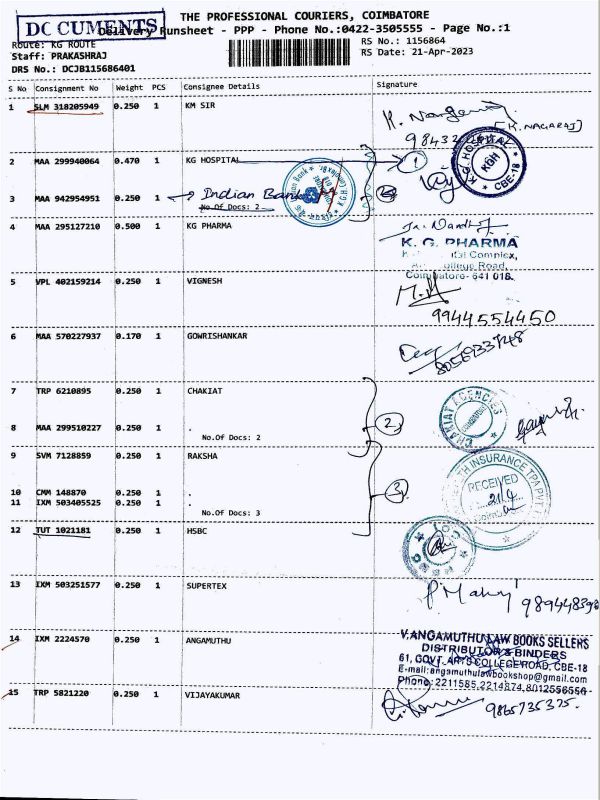 DOCUMENTS
THE PROFESSIONAL COURIERS, COIMBATORE
Delivery Runsheet - PPP - Phone No.:0422-3505555 - Page No.:1
Route: KG ROUTE
RS No.: 1156864
Staff: PRAKASHRAJ
RS Date: 21-Apr-2023
DRS No.: DCJB115686401
S No Consignment No Weight PCS Consignee Details Signature
1 SLM 318205949 0.250 1 KM SIR
[K. NAGARAJ]
2 MAA 299940064 0.470 1 KG HOSPITAL 1
K.G. HOSPITAL KGH CBE-18
3 MAA 942954951 0.250 1 → Indian Bank
No.Of Docs: 2
4 MAA 295127210 0.500 1 KG PHARMA
K. G. PHARMA
Complex,
College Road,
Coimbatore- 641 018.
5 VPL 402159214 0.250 1 VIGNESH
9944554450
6 MAA 570227937 0.170 1 GOWRISHANKAR
7 TRP 6210895 0.250 1 CHAKIAT
2
CHAKIAT AGENCIES
8 MAA 299510227 0.250 1 .
No.Of Docs: 2
9 SVM 7128859 0.250 1 RAKSHA
HEALTH INSURANCE TPA PVT
RECEIVED
21/4
3
10 CMM 148870 0.250 1 .
11 IXM 503405525 0.250 1 .
No.Of Docs: 3
12 TUT 1021181 0.250 1 HSBC
13 IXM 503251577 0.250 1 SUPERTEX
14 IXM 2224570 0.250 1 ANGAMUTHU
V.ANGAMUTHU LAW BOOKS SELLERS
DISTRIBUTOR & BINDERS
61, GOVT. ARTS COLLEGE ROAD, CBE-18
E-mail:angamuthulawbookshop@gmail.com
Phone: 2211585, 2214874, 8012556556
15 TRP 5821220 0.250 1 VIJAYAKUMAR
9865735375.